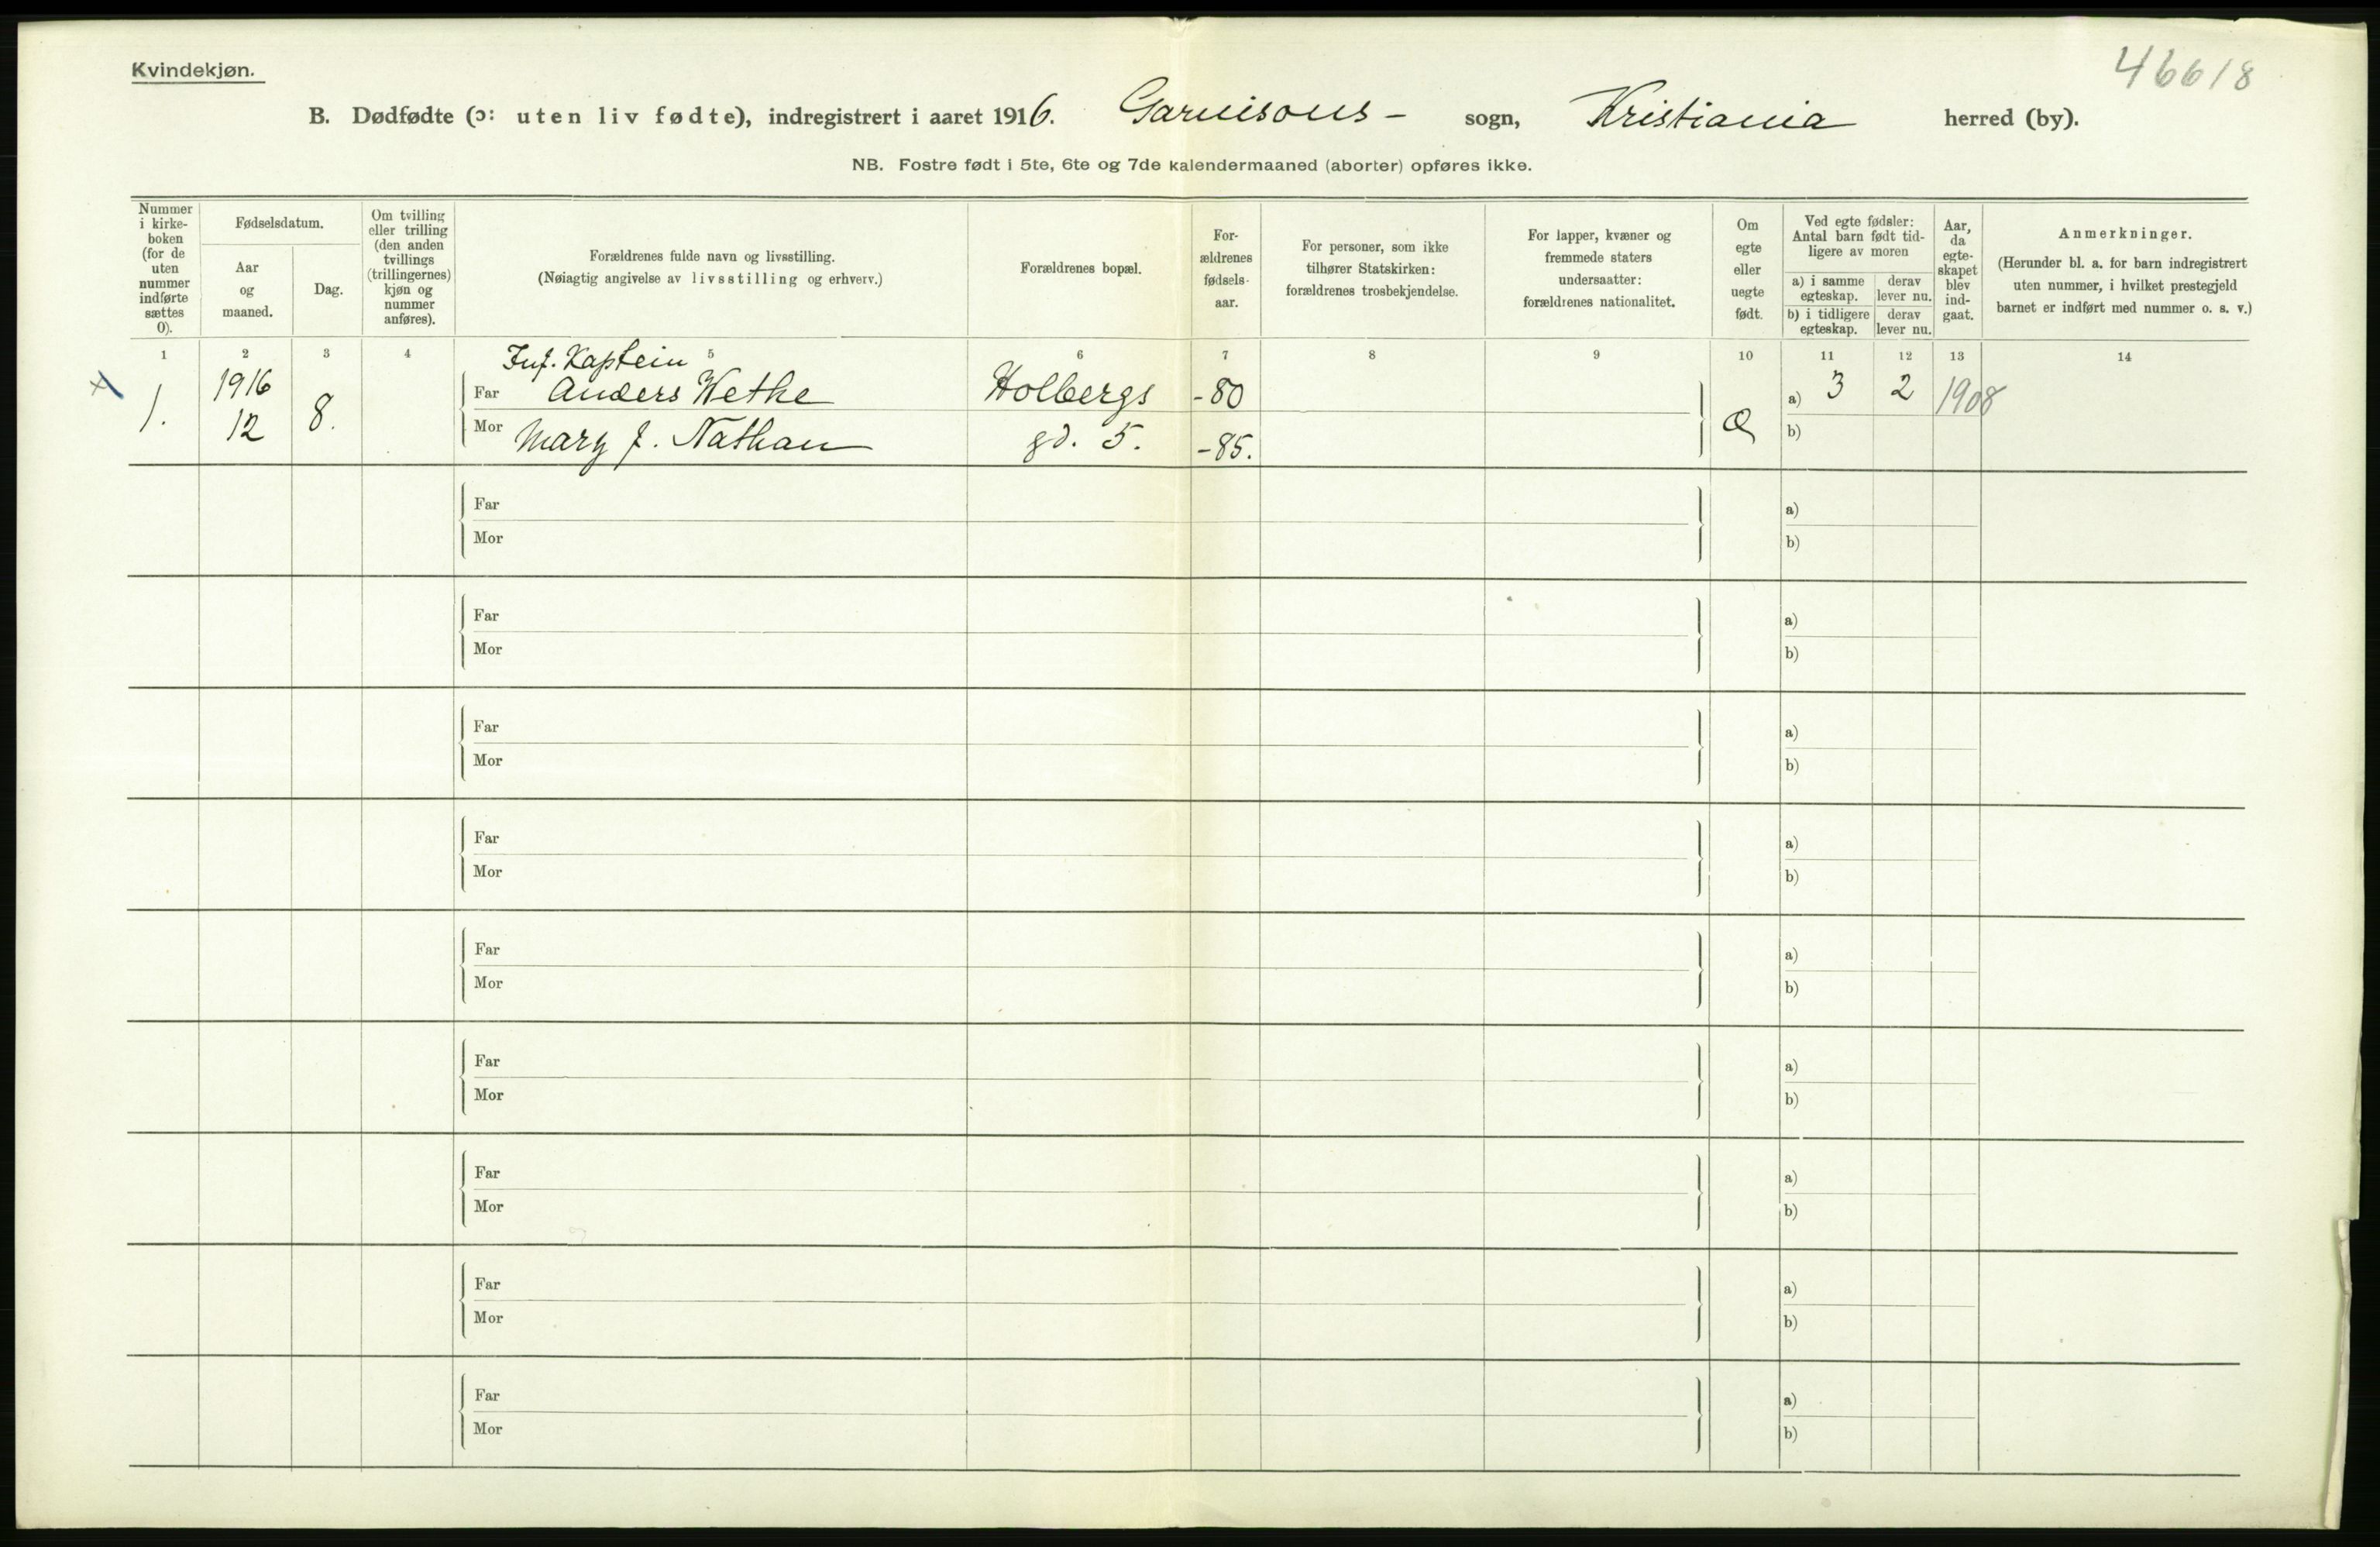 Kvindekjøn.
46618
B. Dødfødte (ɔ: uten liv fødte), indregistrert i aaret 1916. Garnisons- sogn, Kristiania herred (by).
NB. Fostre født i 5te, 6te og 7de kalendermaaned (aborter) opføres ikke.
Nummer
i kirke-
boken
(for de
uten
nummer
indførte
sættes
0).
Fødselsdatum.
Aar
og
maaned.
Dag.
Om tvilling
eller trilling
(den anden
tvillings
(trillingernes)
kjøn og
nummer
anføres).
Forældrenes fulde navn og livsstilling.
(Nøiagtig angivelse av livsstilling og erhverv.)
Forældrenes bopæl.
For-
ældrenes
fødsels-
aar.
For personer, som ikke
tilhører Statskirken:
forældrenes trosbekjendelse.
For lapper, kvæner og
fremmede staters
undersaatter:
forældrenes nationalitet.
Om
egte
eller
uegte
født.
Ved egte fødsler:
Antal barn født tid-
ligere av moren
a) i samme
egteskap.
derav
lever nu.
b) i tidligere
egteskap.
derav
lever nu.
Aar,
da
egte-
skapet
blev
ind-
gaat.
Anmerkninger.
(Herunder bl. a. for barn indregistrert
uten nummer, i hvilket prestegjeld
barnet er indført med nummer o. s. v.)
1 2 3 4 5 6 7 8 9 10 11 12 13 14
Inf. Kaptein
1. 1916 8. Far Anders Wethe Holbergs -80 a) 3 2 1908
12 Mor Mary f. Nathan gd. 5. -85. b)
Far a)
Mor b)
Far a)
Mor b)
Far a)
Mor b)
Far a)
Mor b)
Far a)
Mor b)
Far a)
Mor b)
Far a)
Mor b)
Far a)
Mor b)
Far a)
Mor b)